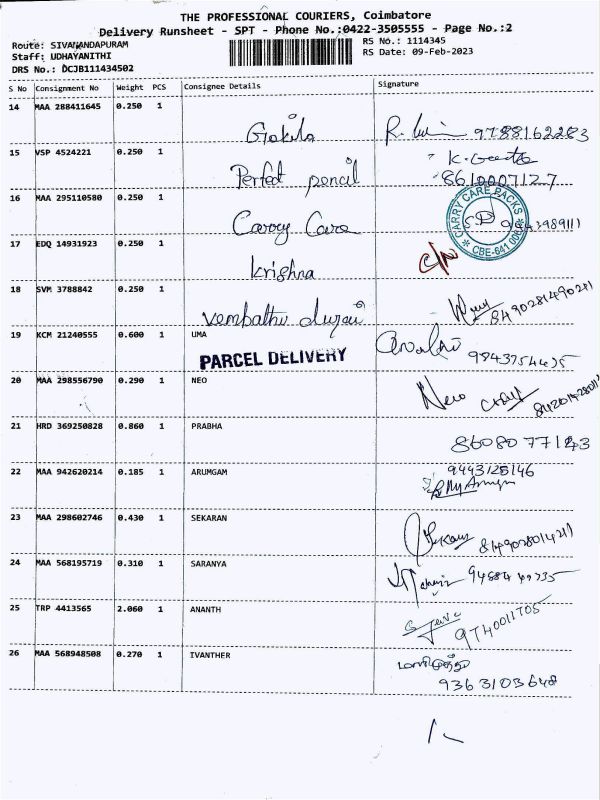 THE PROFESSIONAL COURIERS, Coimbatore
Delivery Runsheet - SPT - Phone No.:0422-3505555 - Page No.:2
Route: SIVANANDAPURAM
RS No.: 1114345
Staff: UDHAYANITHI
RS Date: 09-Feb-2023
DRS No.: DCJB111434502
S No Consignment No Weight PCS Consignee Details Signature
14 MAA 288411645 0.250 1 Gokila 9788162283
15 VSP 4524221 0.250 1 Perfect pencil K. Geetha
8610007127
16 MAA 295110580 0.250 1 Carry Care
CARRY CARE PACKS
CBE-641 006
17 EDQ 14931923 0.250 1 Krishna
18 SVM 3788842 0.250 1 Vembathu durai
19 KCM 21240555 0.600 1 UMA
PARCEL DELIVERY
20 MAA 298556790 0.290 1 NEO Neo
21 HRD 369250828 0.860 1 PRABHA
8608077123
22 MAA 942620214 0.185 1 ARUMGAM 9443125146
23 MAA 298602746 0.430 1 SEKARAN
24 MAA 568195719 0.310 1 SARANYA
25 TRP 4413565 2.060 1 ANANTH 9740011705
26 MAA 568948508 0.270 1 IVANTHER
9363103648